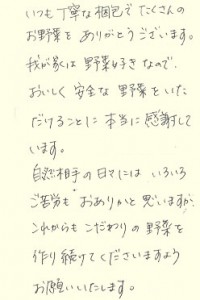 いつも丁寧な梱包でたくさんの
お野菜をありがとうございます。
我が家は野菜好きなので、
おいしく安全な野菜をいた
だけることに本当に感謝して
います。
自然相手の日々にはいろいろ
ご苦労もおありかと思いますが、
これからもこだわりの野菜を
作り続けてくださいますよう
お願いいたします。